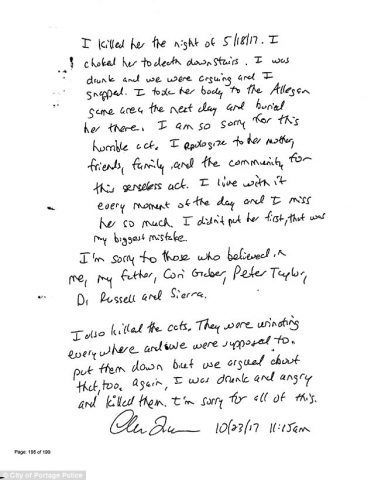 I killed her the night of 5/18/17. I
choked her to death downstairs. I was
drunk and we were arguing and I
snapped. I took her body to the Allegan
game area the next day and buried
her there. I am so sorry for this
horrible act. I apologize to her mother,
friends, family and the community for
this senseless act. I live with it
every moment of the day and I miss
her so much. I didn't put her first, that was
my biggest mistake.
I'm sorry to those who believed in
me, my father, Cori Peter Taylor,
Russell and Sierra.
I also killed the cats. They were urinating
everywhere and we were supposed to
put them down but we argued about
that, too. Again, I was drunk and angry
and killed them. I'm sorry for all of this.
10/23/17 11:15am
Page: 195 of 199
© City of Portage Police